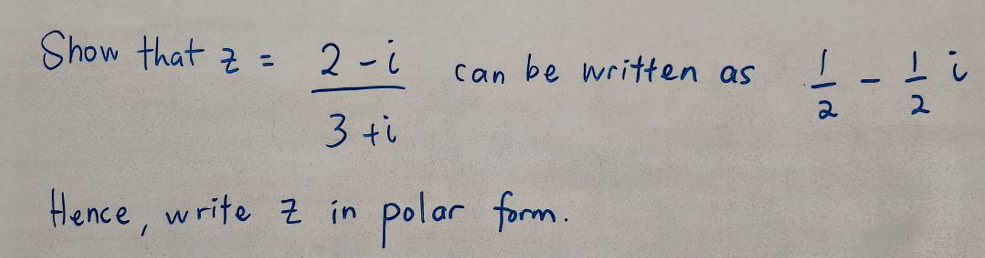 Show that z = 2 - i / 3 + i can be written as 1/2 - 1/2 i
Hence, write z in polar form.